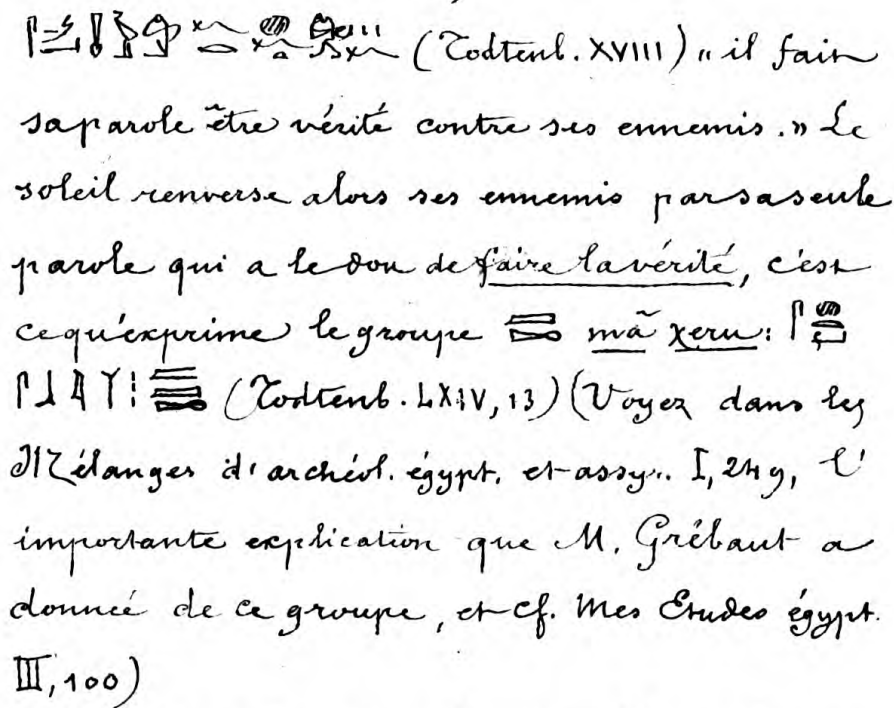 (Todtenb. XVIII) « il fait
sa parole être vérité contre ses ennemis. » Le
soleil renverse alors ses ennemis par sa seule
parole qui a le don de faire la vérité, c'est
ce qu'exprime le groupe mā χeru:
(Todtenb. LXIV, 13) (Voyez dans les
Mélanges d'archéol. égypt. et assy.. I, 249, l'
importante explication que M. Grébaut a
donnée de ce groupe, et cf. Mes Etudes égypt.
III, 100)